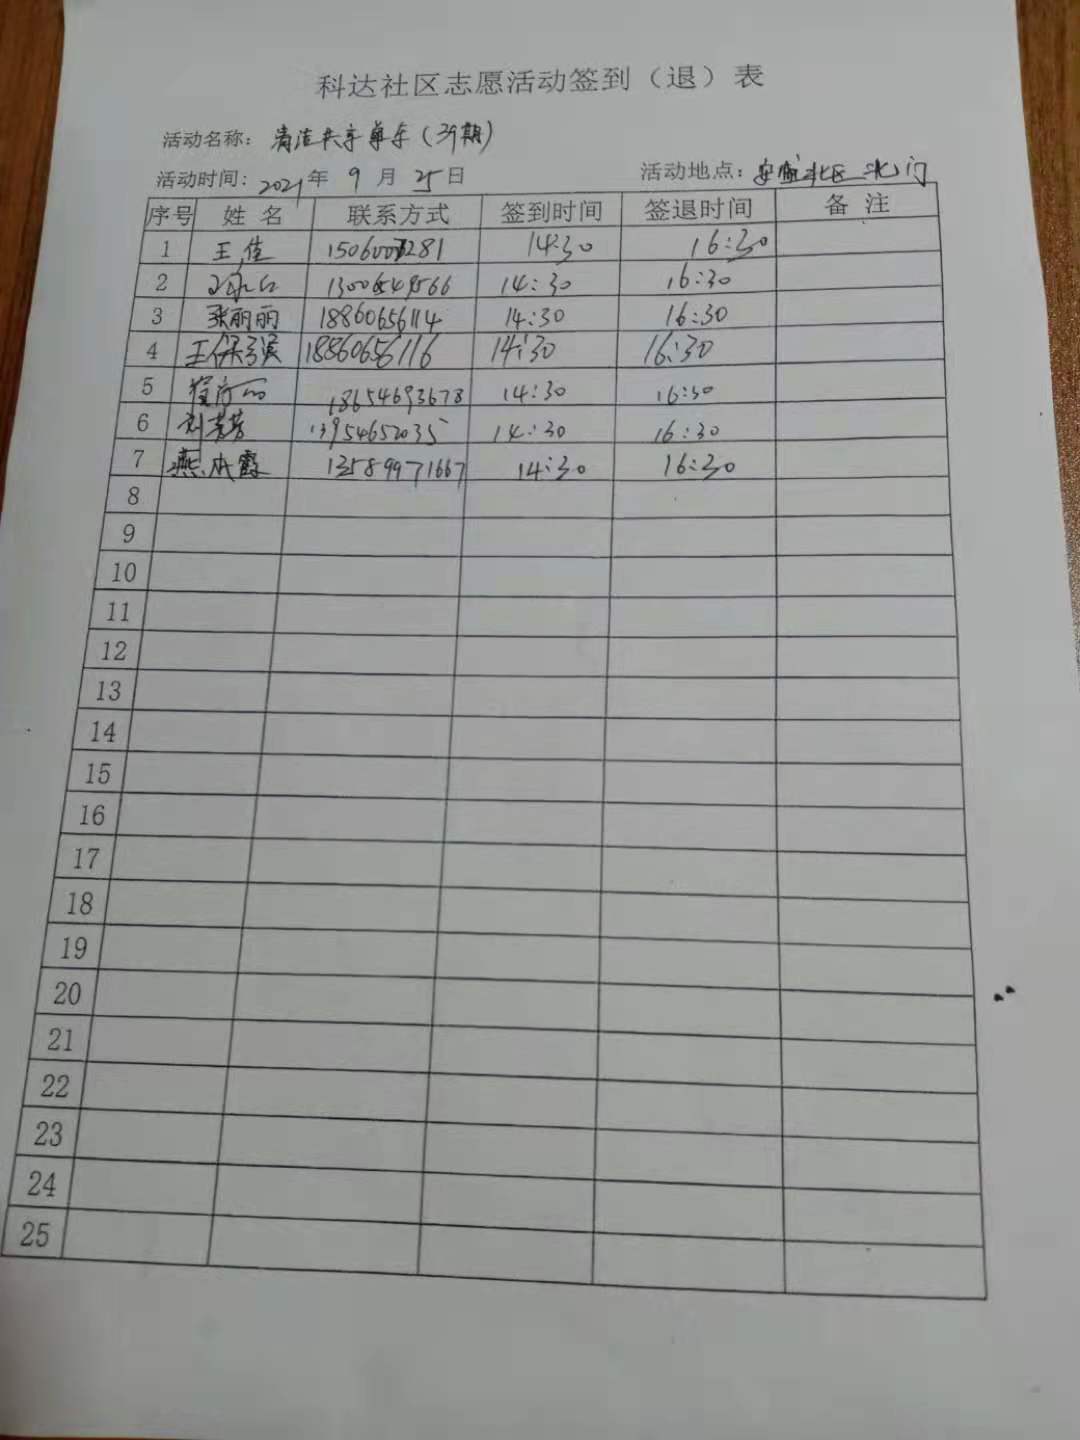 科达社区志愿活动签到（退）表
活动名称：清洁共享单车（39期）
活动时间：2021年 9 月 25日 活动地点：安盛北区北门
序号 姓 名 联系方式 签到时间 签退时间 备 注
1 王佳 14:30 16:30
2 13006549566 14:30 16:30
3 张丽丽 18860656114 14:30 16:30
4 18860656116 14:30 16:30
5 18654693678 14:30 16:30
6 刘芳芳 13954652035 14:30 16:30
7 燕霞 13589971667 14:30 16:30
8
9
10
11
12
13
14
15
16
17
18
19
20
21
22
23
24
25